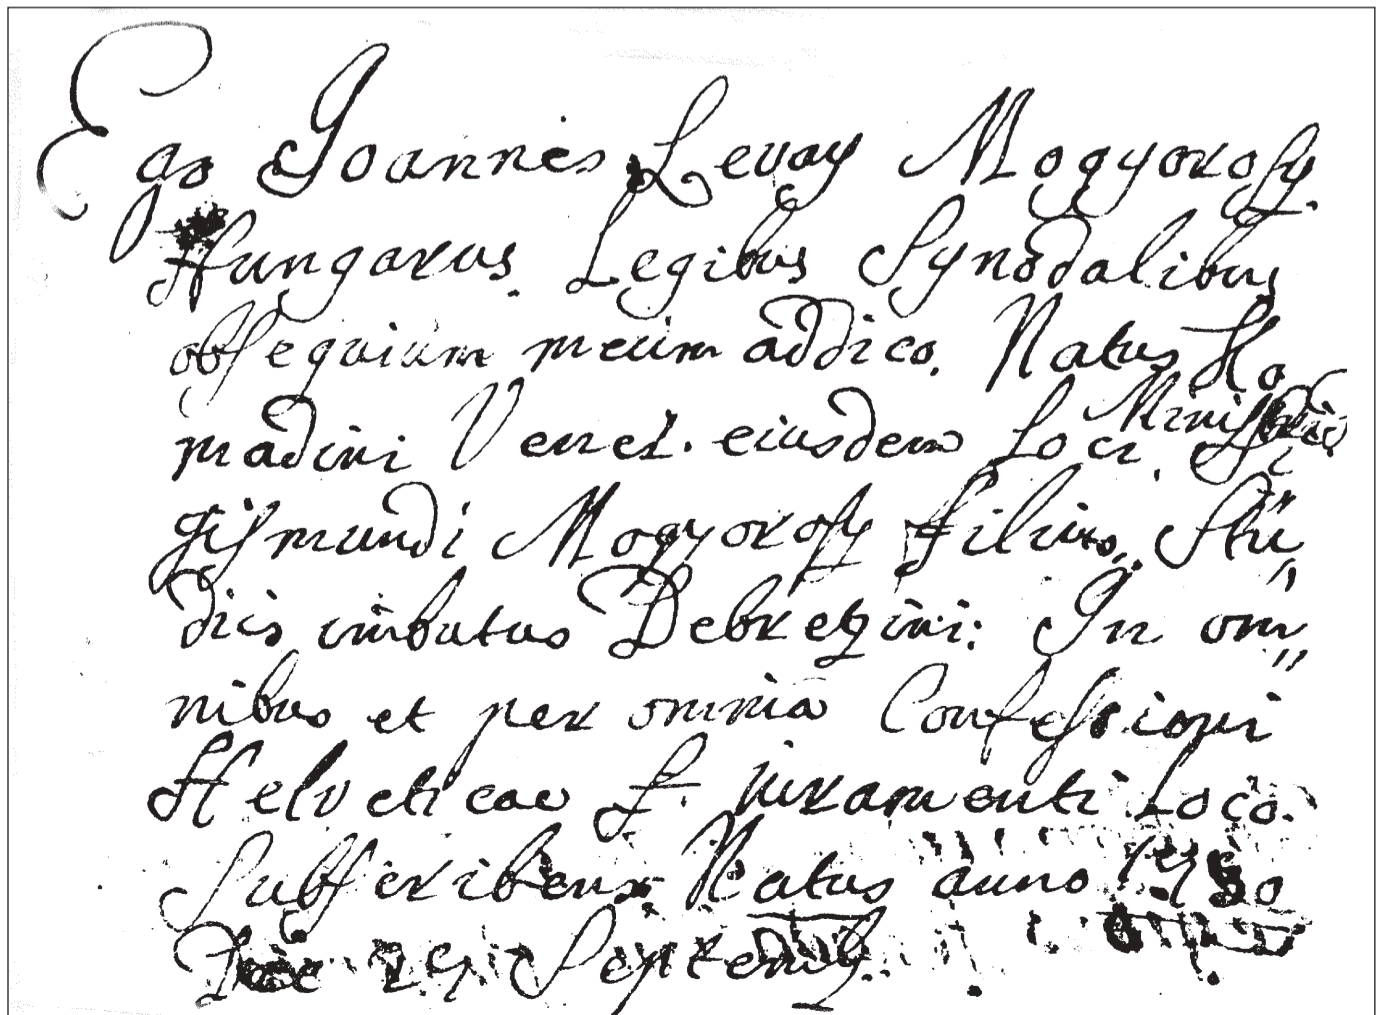 Ego Joannes Levay Mogyorosy
Hungarus. Legibus Synodalibus
obsequium meum addico. Natus Ho
madini Venet. eiusdem Loci Ministri Si
gismundi Mogyorosy Filius, Stu„
diis imbutus Debretzini: In om„
nibus et per omnia Confessioni
Helveticae L. juramenti Loco.
Subscribens Natus anno
Die Septemb.